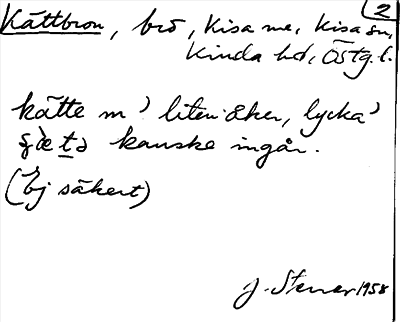 2
Kättbron, bro, Kisa sn, Kisa sn,
Kinda hd, Östg.l.
kätte m 'liten åker, lycka'
kanske ingår.
(Ej säkert)
J. Stenar 1958